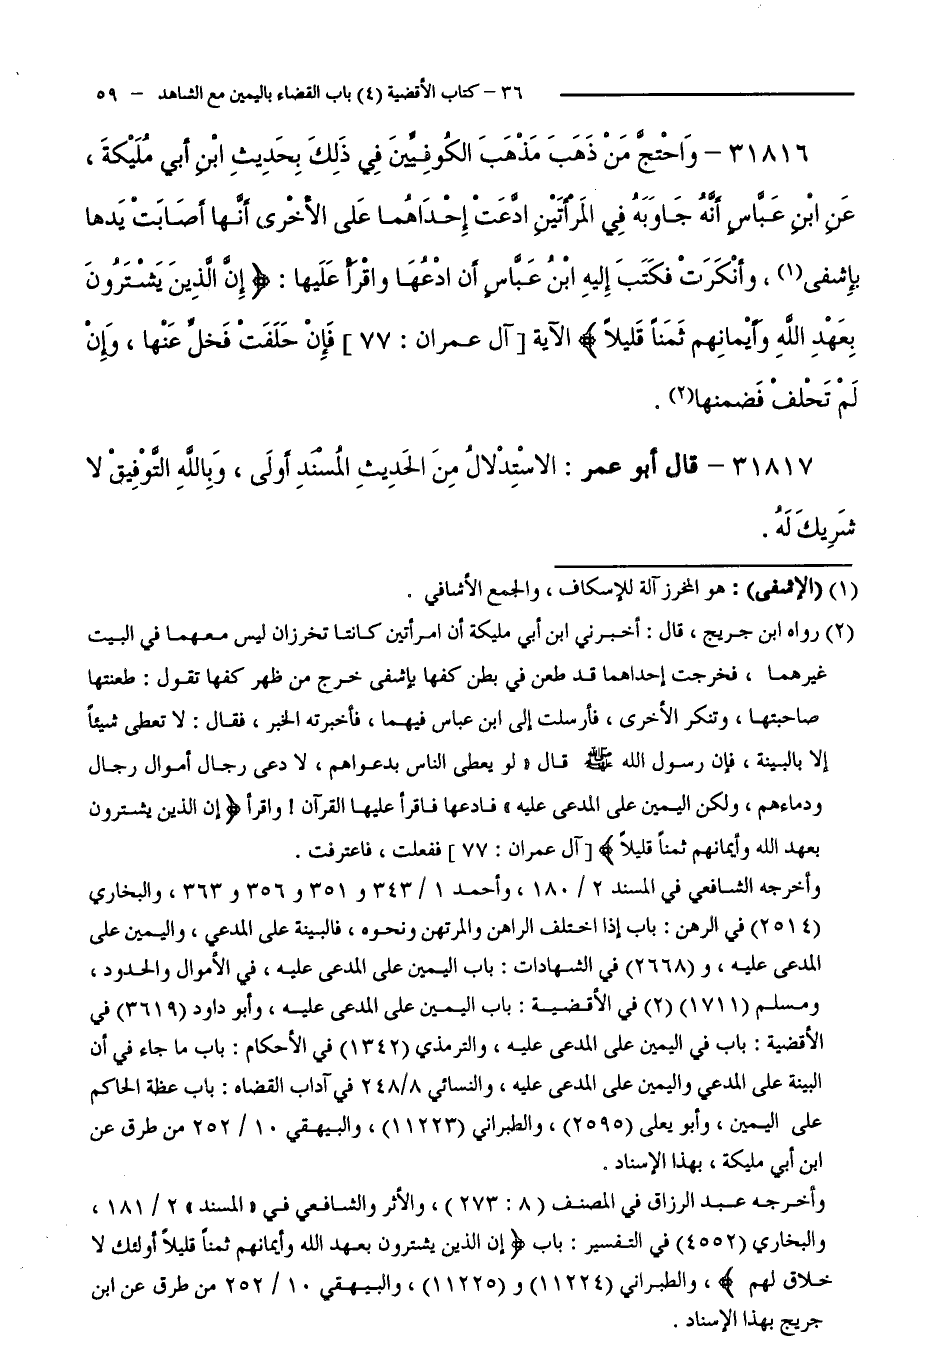 ٣٦ – كتاب الأقضية (٤) باب القضاء باليمين مع الشاهد – ٥٩
٣١٨١٦ – وَاحْتجَّ مَنْ ذَهَبَ مَذْهَبَ الكُوفِيِّينَ فِي ذَلِكَ بِحَدِيثِ ابْنِ أبي مُلَيْكَةَ ،
عَنِ ابْنِ عَبَّاسٍ أنَّهُ جَاوَبَهُ فِي المَرْأتَيْنِ ادَّعَتْ إحْدَاهُما عَلى الأخْرى أنَّها أصَابَتْ يَدها
بِإشفى(١) ، وأنْكَرَتْ فكَتَبَ إليهِ ابْنُ عَبَّاسٍ أن ادْعُهَا واقْرَأ عَلَيها : ﴿ إنَّ الَّذِينَ يَشْتَرُونَ
بِعَهْدِ اللَّهِ وَأيْمانِهم ثَمَناً قَلِيلاً ﴾ الآية [ آل عمران : ٧٧ ] فَإنْ حَلَفَتْ فَخلِّ عَنْها ، وإنْ
لَمْ تَحْلفْ فَضمنها(٢) .
٣١٨١٧ – قال أبو عمر : الاسْتِدْلالُ مِنَ الحَدِيثِ المُسْنَدِ أولَى ، وَبِاللَّهِ التَّوْفِيقْ لا
شَرِيكَ لَهُ .
(١) (الإشفى) : هو المخرز آلة للإسكاف ، والجمع الأشافي .
(٢) رواه ابن جريج ، قال : أخبرني ابن أبي مليكة أن امرأتين كانتا تخرزان ليس معهما في البيت
غيرهما ، فخرجت إحداهما قد طعن في بطن كفها بإشفى خرج من ظهر كفها تقول : طعنتها
صاحبتها ، وتنكر الأخرى ، فأرسلت إلى ابن عباس فيهما ، فأخبرته الخبر ، فقال : لا تعطى شيئاً
إلا بالبينة ، فإن رسول الله ﷺ قال « لو يعطى الناس بدعواهم ، لا دعى رجال أموال رجال
ودماءهم ، ولكن اليمين على المدعى عليه » فادعها فاقرأ عليها القرآن ! واقرأ ﴿ إن الذين يشترون
بعهد الله وأيمانهم ثمناً قليلاً ﴾ [ آل عمران : ٧٧ ] ففعلت ، فاعترفت .
وأخرجه الشافعي في المسند ٢ / ١٨٠ ، وأحمد ١ / ٣٤٣ و ٣٥١ و ٣٥٦ و ٣٦٣ ، والبخاري
(٢٥١٤) في الرهن : باب إذا اختلف الراهن والمرتهن ونحوه ، فالبينة على المدعي ، واليمين على
المدعى عليه ، و (٢٦٦٨) في الشهادات : باب اليمين على المدعى عليه ، في الأموال والحدود ،
ومسلم (١٧١١) (٢) في الأقضية : باب اليمين على المدعى عليه ، وأبو داود (٣٦١٩) في
الأقضية : باب في اليمين على المدعى عليه ، والترمذي (١٣٤٢) في الأحكام : باب ما جاء في أن
البينة على المدعي واليمين على المدعى عليه ، والنسائي ٢٤٨/٨ في آداب القضاه : باب عظة الحاكم
على اليمين ، وأبو يعلى (٢٥٩٥) ، والطبراني (١١٢٢٣) ، والبيهقي ١٠ / ٢٥٢ من طرق عن
ابن أبي مليكة ، بهذا الإسناد .
وأخرجه عبد الرزاق في المصنف ( ٨ : ٢٧٣ ) ، والأثر والشافعي في « المسند » ٢ / ١٨١ ،
والبخاري (٤٥٥٢) في التفسير : باب ﴿ إن الذين يشترون بعهد الله وأيمانهم ثمناً قليلاً أولئك لا
خلاق لهم ﴾ ، والطبراني (١١٢٢٤) و (١١٢٢٥) ، والبيهقي ١٠ / ٢٥٢ من طرق عن ابن
جريج بهذا الإسناد .